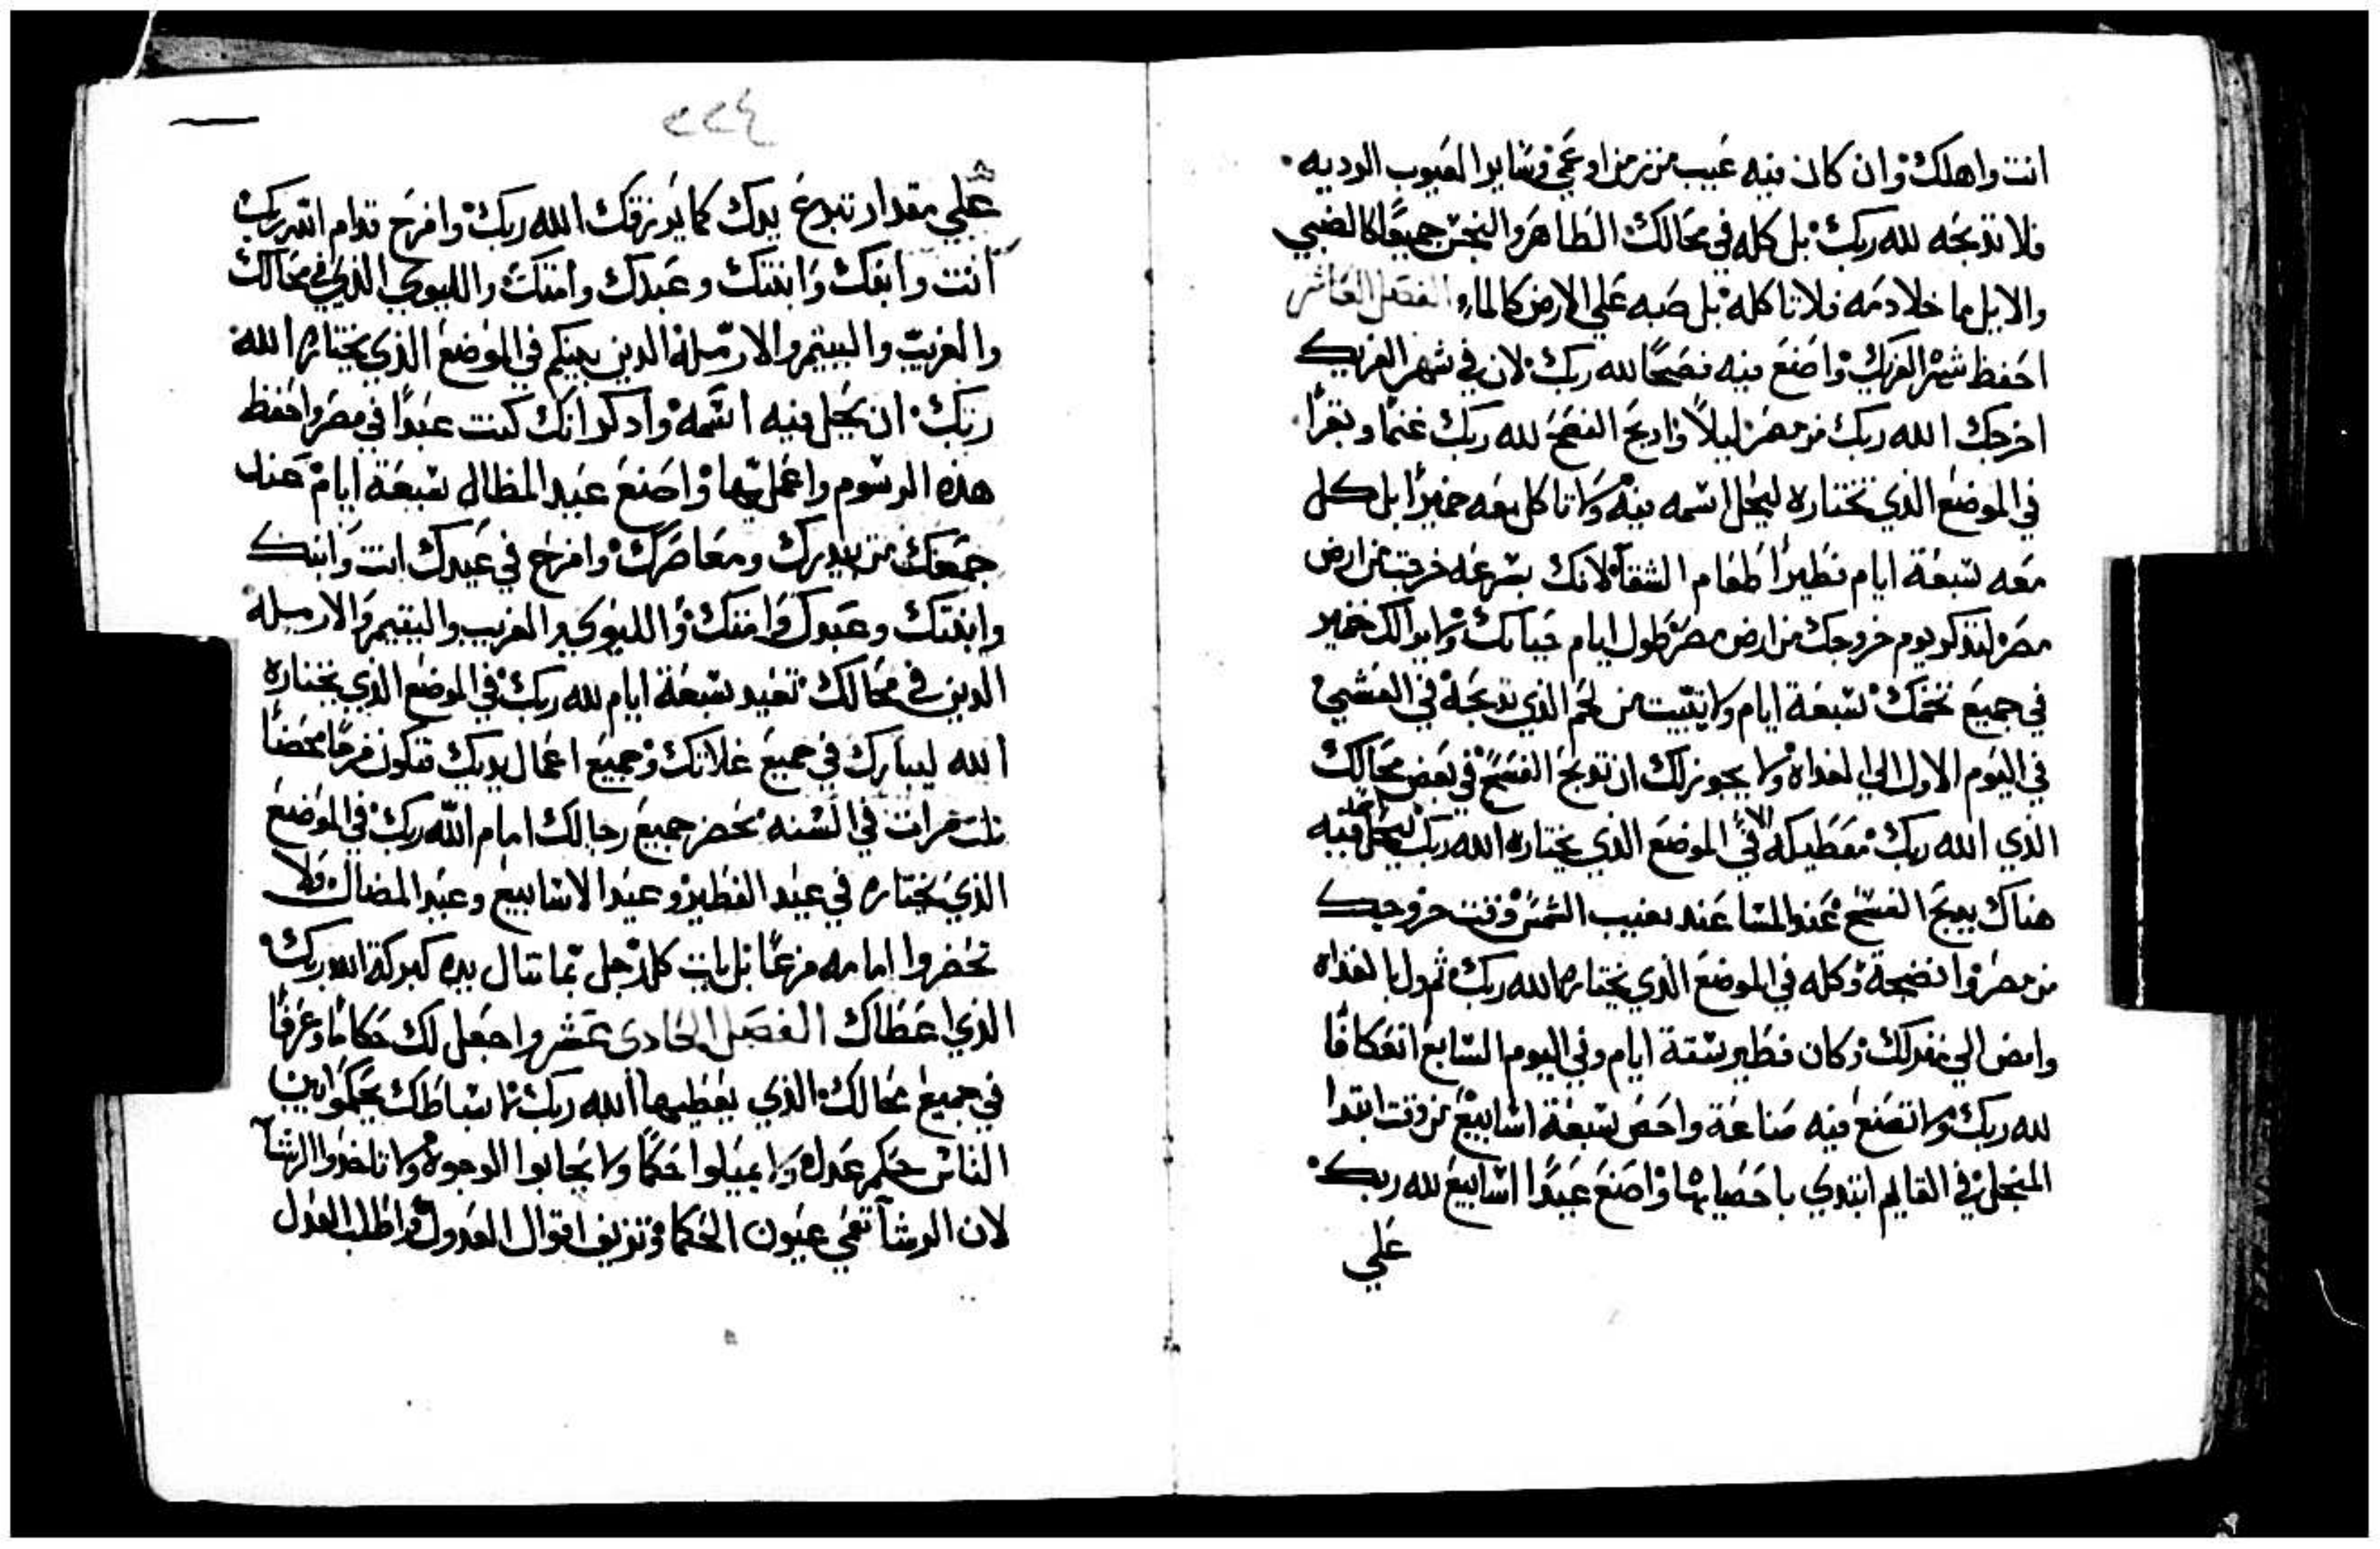 انت واهلك وان كان فيه عيب من زمن او عمي وساير العيوب الرديه
فلا تذبحه لله ربك بل كله في محالك الطاهر والنجس جميعًا كالضبي
والايل ما خلا دمه فلا تاكله بل صبه علي الارض كالماء الفصل العاشر
احفظ شهر الفريك واصنع فيه فصحًا لله ربك لان في شهر الفريك
اخرجك الله ربك من مصر ليلاً واذبح الفصح لله ربك غنمًا وبقرًا
في الموضع الذي تختاره ليحل اسمه فيه ولا تاكل معه خميرًا بل كل
معه سبعة ايام فطيرًا طعام الشقا لانك بسرعه خرجت من ارض
مصر لتذكر يوم خروجك من ارض مصر طول ايام حياتك ولا يرا لك خمير
في جميع تخمك سبعة ايام ولا يبيت من لحم الذي تذبحه في العشي
في اليوم الاول الي الغداه ولا يجوز لك ان تذبح الفسح في بعض محالك
الذي الله ربك معطيكه الا في الموضع الذي يختاره الله ربك ليحل اسمه فيه
هناك يذبح الفسح عند المسا عند مغيب الشمس وقت خروجك
من مصر وانضجه وكله في الموضع الذي يختاره الله ربك ثم ول بالغداه
وامض الي منزلك وكان فطير ستة ايام وفي اليوم السابع اعتكافًا
لله ربك ولا تصنع فيه صناعة واحص سبعة اسابيع من وقت ابتدا
المنجل في القايم ابتدي باحصايها واصنع عيدًا اسابيع لله ربك
علي
٢٢٤
علي مقدار تبرع يدك كما يرزقك الله ربك وافرح قدام الله ربك
انت وابنك وابنتك وعبدك وامتك والليوي الذي في محالك
والغريب واليتيم والارملة الذين بينكم في الموضع الذي يختاره الله
ربك ان يحل فيه اسمه واذكر انك كنت عبدًا في مصر واحفظ
هذه الرسوم واعمل بها واصنع عيد المظال سبعة ايام عند
جمعك من بيدرك ومعاصرك وافرح في عيدك انت وابنك
وابنتك وعبدك وامتك والليوي والغريب واليتيم والارمله
الذين في محالك تعيد سبعة ايام لله ربك في الموضع الذي يختاره
الله ليبارك في جميع غلاتك وجميع اعمال يديك فتكون فرحًا محضًا
تلت مرات في السنه يحضر جميع رجالك امام الله ربك في الموضع
الذي يختاره في عيد الفطير وعيد الاسابيع وعيد المضال ولا
تحضروا امامه فرغًا بل يات كل رجل بما تنال يده كبركة الله ربك
الذي اعطاك الفصل الحادي عشر واجعل لك حكامًا وعرفًا
في جميع محالك الذي يعطيها الله ربك لاسباطك يحكموا بين
الناس حكم عدل ولا يميلوا حكمًا ولا يحابوا الوجوه ولا تاخذوا الرشا
لان الرشا تعمي عيون الحكما وتزيف اقوال العدول واطلب العدل